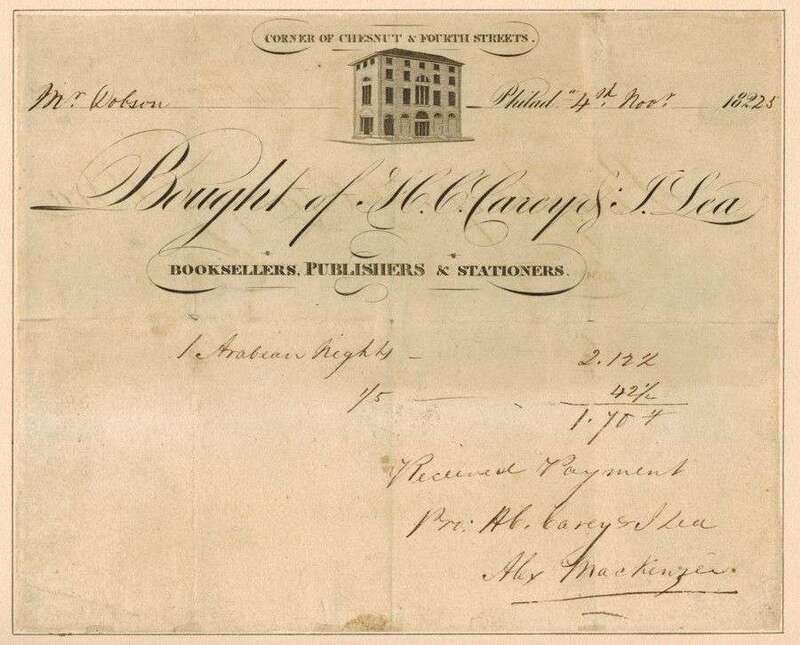 CORNER OF CHESNUT & FOURTH STREETS.
Mr. Dobson Philada 4th. Novr. 1822
Bought of H.C. Carey & I. Lea
BOOKSELLERS, PUBLISHERS & STATIONERS.
1 Arabian Nights — 2.12½
1/5 — 42½
1.70
Received Payment
Pro: H.C. Carey & I Lea
Alex MacKenzie.